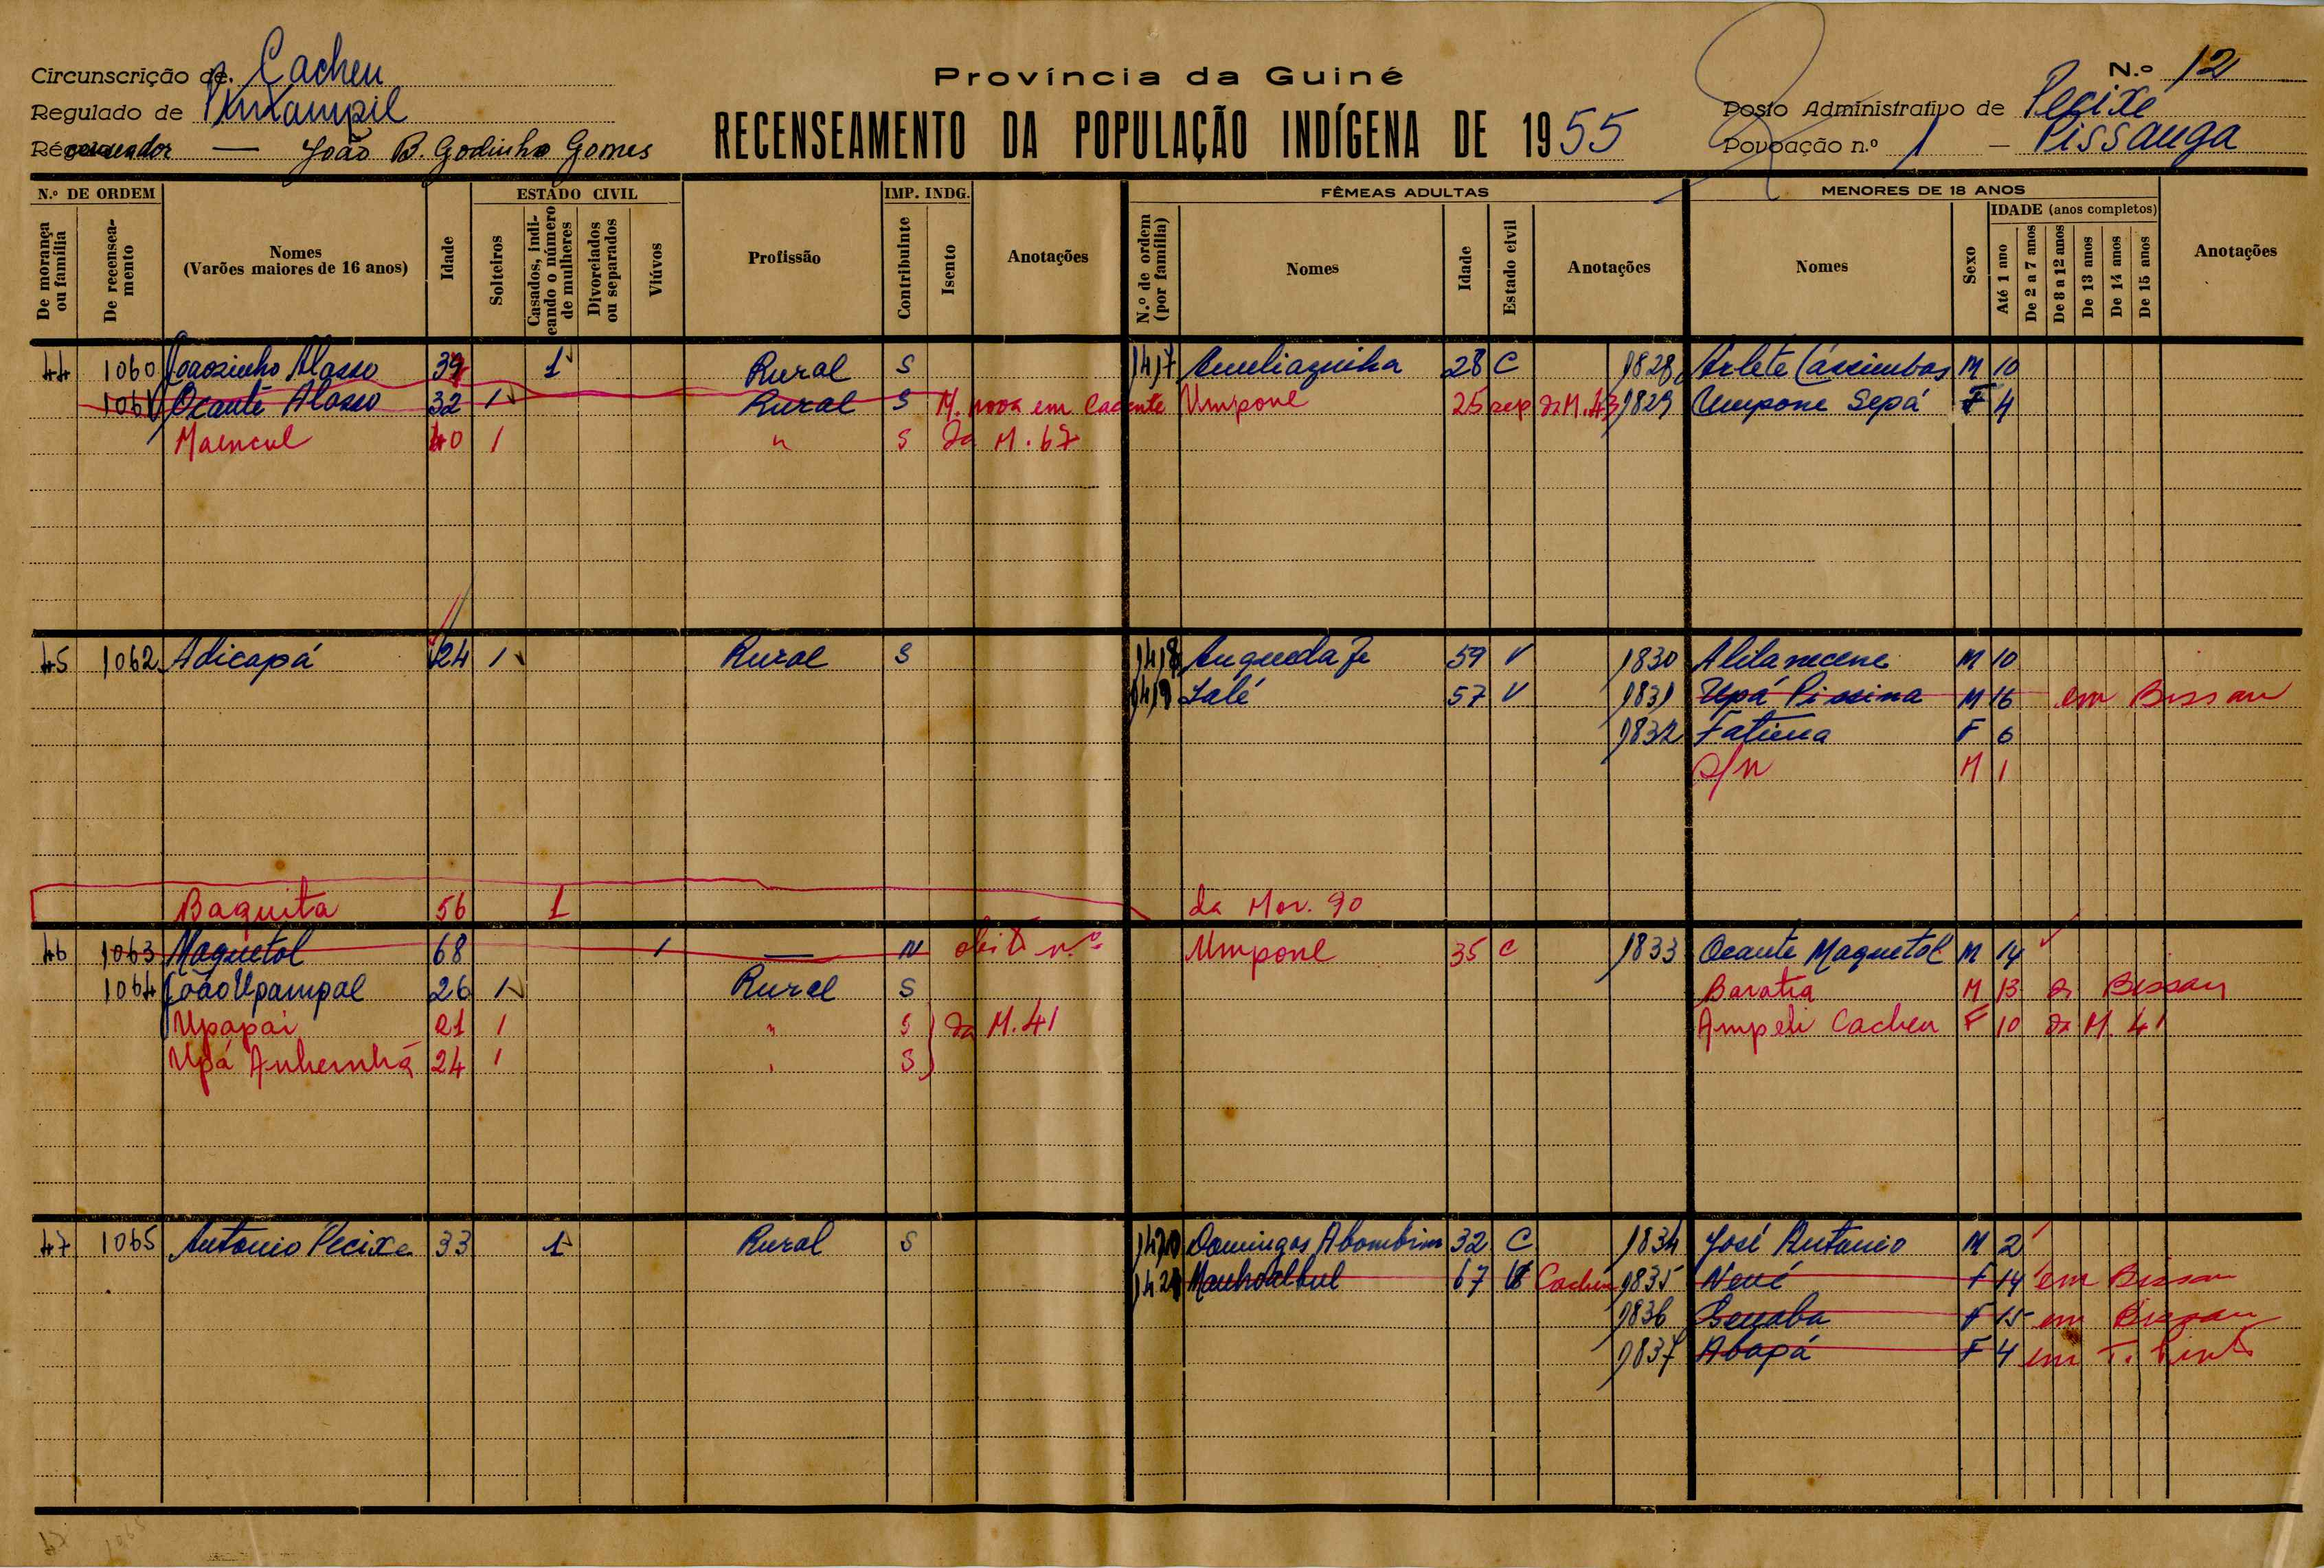 Circunscrição de Cacheu
Província da Guiné
N.º 12
Regulado de
Posto Administrativo de Pecixe
RECENSEAMENTO DA POPULAÇÃO INDÍGENA DE 1955
Recenseador — João B. Godinho Gomes
Povoação n.º 1 — Pissanga
N.º DE ORDEM
ESTADO CIVIL
IMP. INDG.
FÊMEAS ADULTAS
MENORES DE 18 ANOS
De morança ou família
De recenseamento
Nomes (Varões maiores de 16 anos)
Idade
Solteiros
Casados, indicando o número de mulheres
Divorciados ou separados
Viúvos
Profissão
Contribuinte
Isento
Anotações
N.º de ordem (por família)
Nomes
Idade
Estado civil
Anotações
Nomes
Sexo
IDADE (anos completos)
Até 1 ano
De 2 a 7 anos
De 8 a 12 anos
De 13 anos
De 14 anos
De 15 anos
Anotações
44 1060 Joãosinho Alasso 39 1 Rural S 1417 28 C 1828 Arlete M 10
1061 Ocante Alasso 32 1 Rural S M. nova em Umpone 25 sep da M. 43 1829 Umpone Sepá F 4
Maencul 40 1 " S da M. 67
45 1062 Adicapá 24 1 Rural S 1418 Angueda 59 V 1830 M 10
1419 Salé 57 V 1831 Upá M 16 em Bissau
1832 Fatima F 6
s/n M 1
Baquita 56 1 da Mor. 90
46 1063 Maquetol 68 1 — N obito n.º Umpone 35 C 1833 Ocante Maquetol M 14
1064 João Upampal 26 1 Rural S Baratia M 13 de Bissau
Upapai 21 1 " S da M. 41 Ampeli Cacheu F 10 da M. 41
Upá Anhemhá 24 1 " S
47 1065 Antonio Pecixe 33 1 Rural S 1420 Domingas 32 C 1834 José Antonio M 2
1421 67 V Cacheu 1835 Nené F 14 em Bissau
1836 F 15 em Bissau
1837 Abapá F 4 em T. Pinto